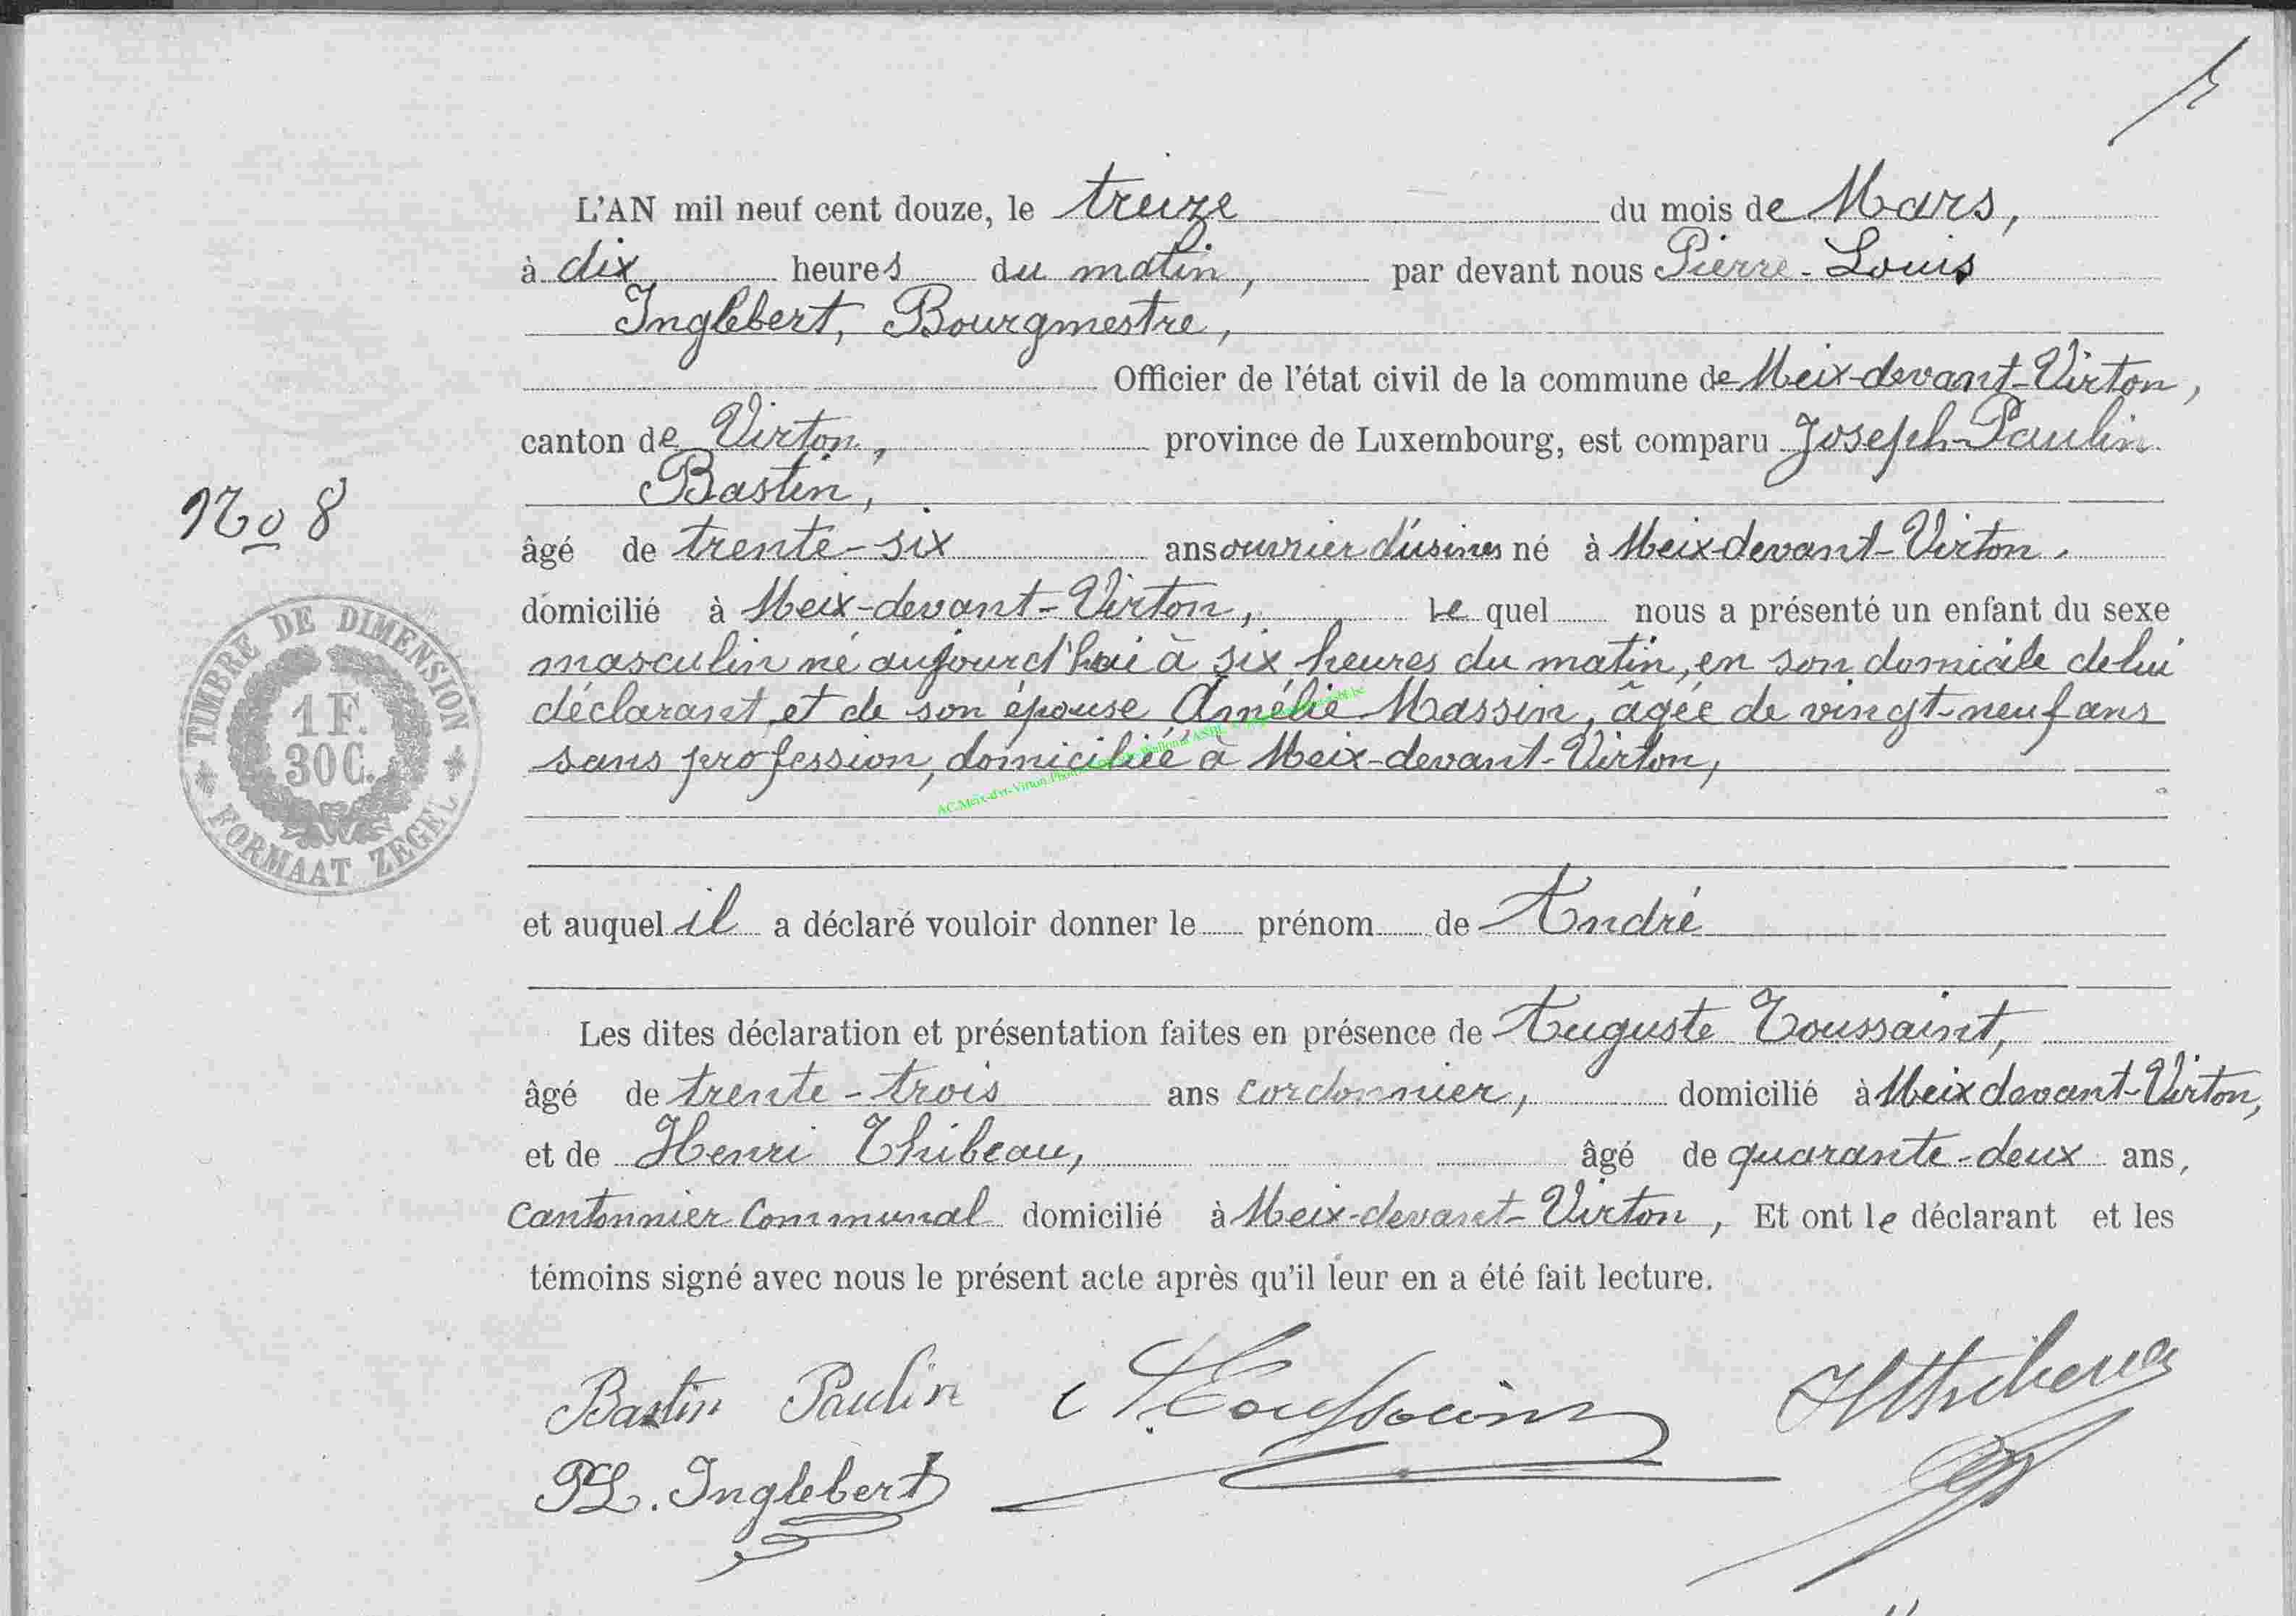 5
L'AN mil neuf cent douze, le treize du mois de Mars,
à dix heures du matin, par devant nous Pierre-Louis
Inglebert, Bourgmestre,
Officier de l'état civil de la commune de Meix-devant-Virton,
canton de Virton, province de Luxembourg, est comparu Joseph-Paulin
Bastin,
No 8
âgé de trente-six ans ouvrier d'usines né à Meix-devant-Virton,
domicilié à Meix-devant-Virton, le quel nous a présenté un enfant du sexe
masculin né aujourd'hui à six heures du matin, en son domicile de lui
déclarant, et de son épouse Amélie Massin, âgée de vingt-neuf ans
sans profession, domiciliée à Meix-devant-Virton,
TIMBRE DE DIMENSION
1 F.
30 C.
FORMAAT ZEGEL
AC.Meix-dvt-Virton
et auquel il a déclaré vouloir donner le prénom de André
Les dites déclaration et présentation faites en présence de Auguste Toussaint,
âgé de trente-trois ans cordonnier, domicilié à Meix devant-Virton,
et de Henri Thibeau, âgé de quarante-deux ans,
cantonnier communal domicilié à Meix-devant-Virton, Et ont le déclarant et les
témoins signé avec nous le présent acte après qu'il leur en a été fait lecture.
Bastin Paulin A Toussaint H Thibeau
PL. Inglebert